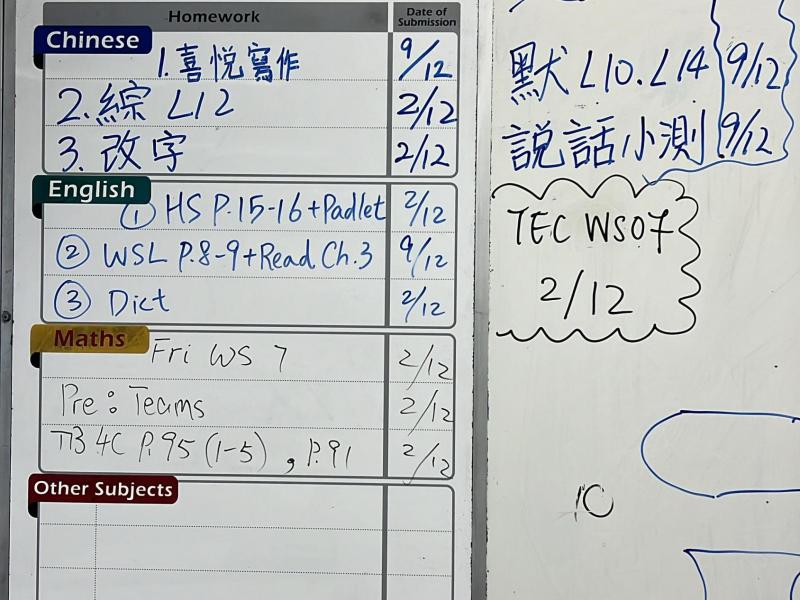 Homework
Date of Submission
Chinese
1. 喜悅寫作 9/12
2. 綜 L12 2/12
3. 改字 2/12
English
① HS P.15-16+Padlet 2/12
② WSL P.8-9+Read Ch.3 9/12
③ Dict 2/12
Maths
Fri WS 7 2/12
Pre: Teams 2/12
TB 4C P.95 (1-5), P.91 2/12
Other Subjects
默 L10. L14 9/12
説話小測 9/12
TEC WS07
2/12
10